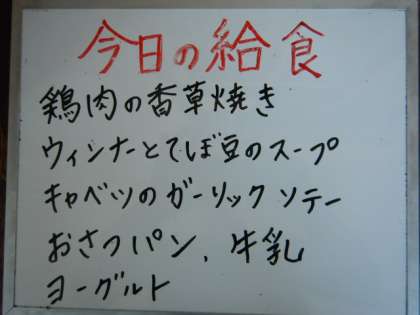 今日の給食
鶏肉の香草焼き
ウィンナーとてぼ豆のスープ
キャベツのガーリックソテー
おさつパン、牛乳
ヨーグルト